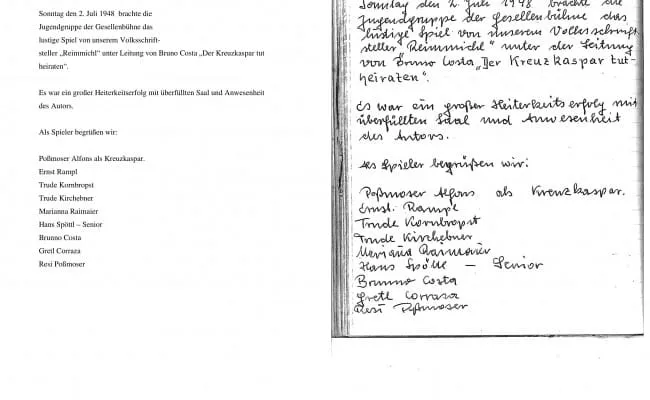 Sonntag den 2. Juli 1948 brachte die
Jugendgruppe der Gesellenbühne das
lustige Spiel von unserem Volksschrift-
steller „Reimmichl“ unter Leitung von Bruno Costa „Der Kreuzkaspar tut
heiraten“.
Es war ein großer Heiterkeitserfolg mit überfüllten Saal und Anwesenheit
des Autors.
Als Spieler begrüßen wir:
Poßmoser Alfons als Kreuzkaspar.
Ernst Rampl
Trude Kornbropst
Trude Kirchebner
Marianna Raimaier
Hans Spöttl – Senior
Brunno Costa
Gretl Corraza
Resi Poßmoser
Sonntag den 2. Juli 1948 brachte die
Jugendgruppe der Gesellenbühne das
lustige Spiel von unserem Volksschrift-
steller „Reimmichl“ unter der Leitung
von Bruno Costa „Der Kreuzkaspar tut-
heiraten“.
Es war ein großer Heiterkeitserfolg mit
überfüllten Saal und Anwesenheit
des Autors.
Als Spieler begrüßen wir:
Poßmoser Alfons als Kreuzkaspar.
Ernst. Rampl
Trude Kornbropst
Trude Kirchebner
Mariana Raimaier
Hans Spöttl – Senior
Brunno Costa
Gretl Corraza
Resi Poßmoser